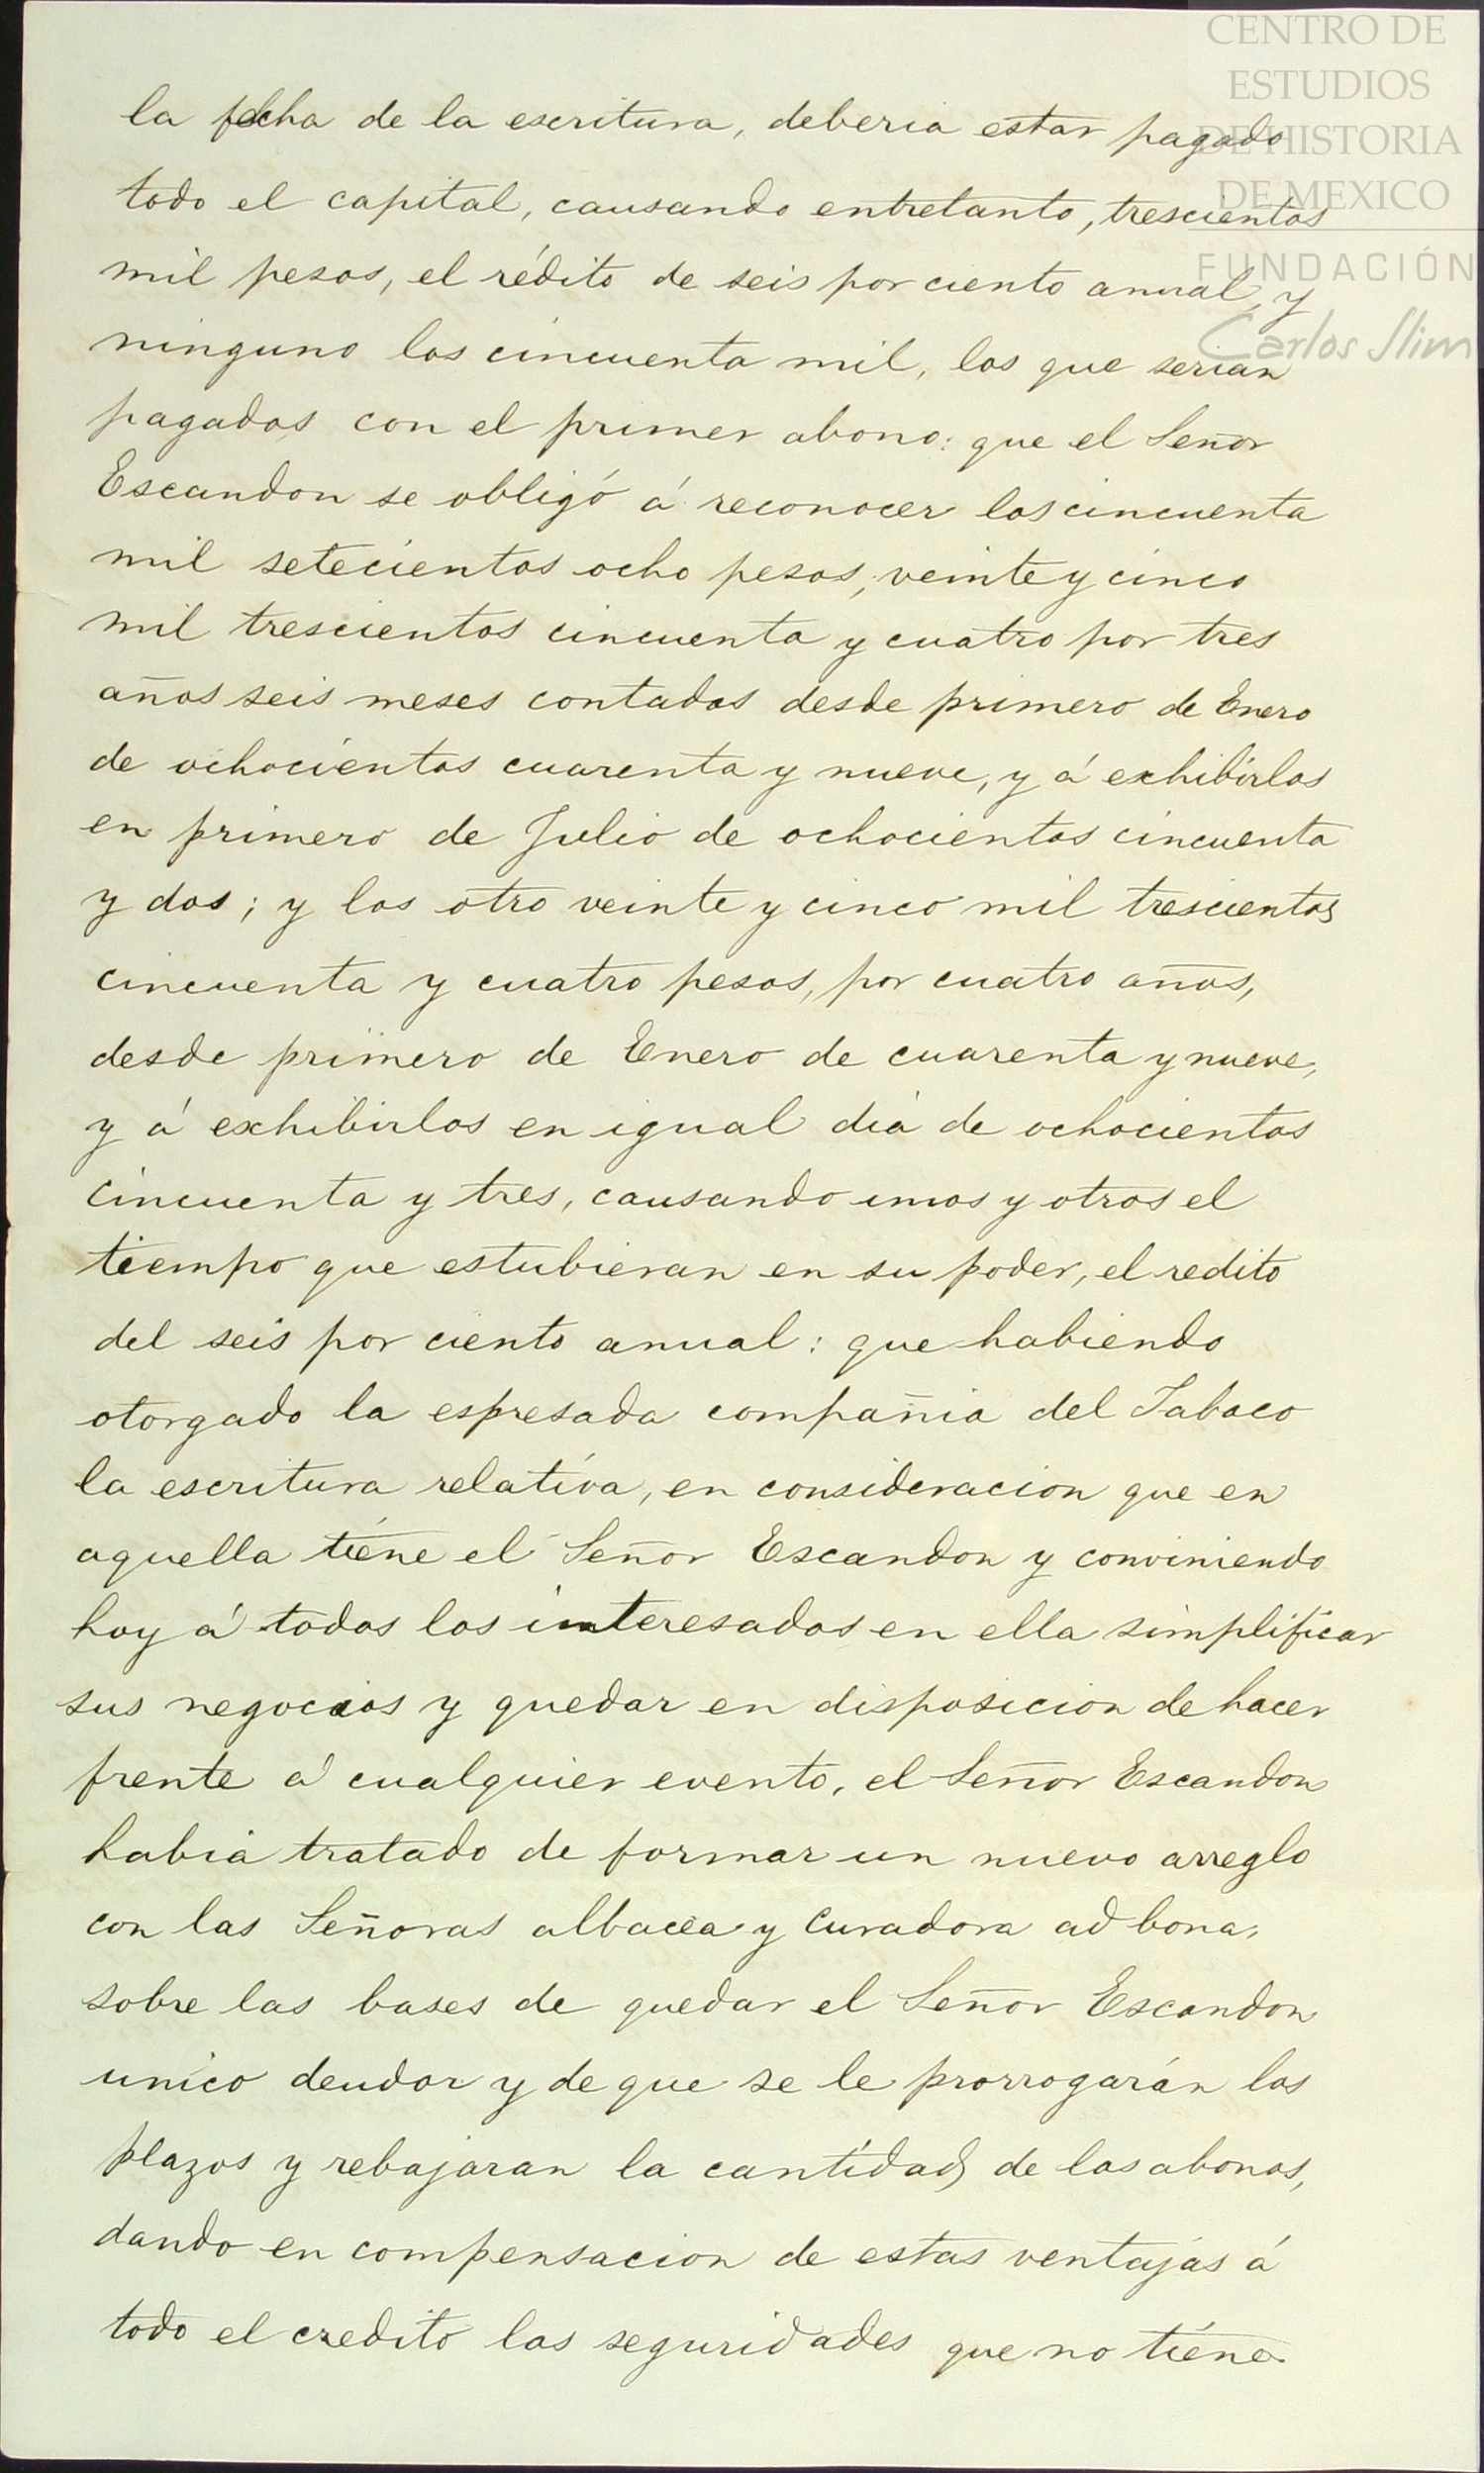 CENTRO DE
ESTUDIOS
DE HISTORIA
DE MEXICO
FUNDACIÓN
Carlos Slim
la fecha de la escritura, deberia estar pagado
todo el capital, causando entretanto, trescientos
mil pesos, el rédito de seis por ciento anual, y
ninguno los cincuenta mil, los que serian
pagados con el primer abono: que el Señor
Escandon se obligó á reconocer los cincuenta
mil setecientos ocho pesos, veinte y cinco
mil trescientos cincuenta y cuatro por tres
años seis meses contados desde primero de Enero
de ochocientos cuarenta y nueve, y á exhibirlos
en primero de Julio de ochocientos cincuenta
y dos; y los otro veinte y cinco mil trescientos
cincuenta y cuatro pesos, por cuatro años,
desde primero de Enero de cuarenta y nueve,
y á exhibirlos en igual dia de ochocientos
cincuenta y tres, causando unos y otros el
tiempo que estubieran en su poder, el redito
del seis por ciento anual: que habiendo
otorgado la espresada compañia del Tabaco
la escritura relativa, en consideracion que en
aquella tiene el Señor Escandon y conviniendo
hoy á todos los interesados en ella simplificar
sus negocios y quedar en disposicion de hacer
frente á cualquier evento, el Señor Escandon
habia tratado de formar un nuevo arreglo
con las Señoras albacea y curadora ad bona,
sobre las bases de quedar el Señor Escandon
unico deudor y de que se le prorrogarán los
plazos y rebajaran la cantidad de los abonos,
dando en compensacion de estas ventajas á
todo el credito las seguridades que no tiene